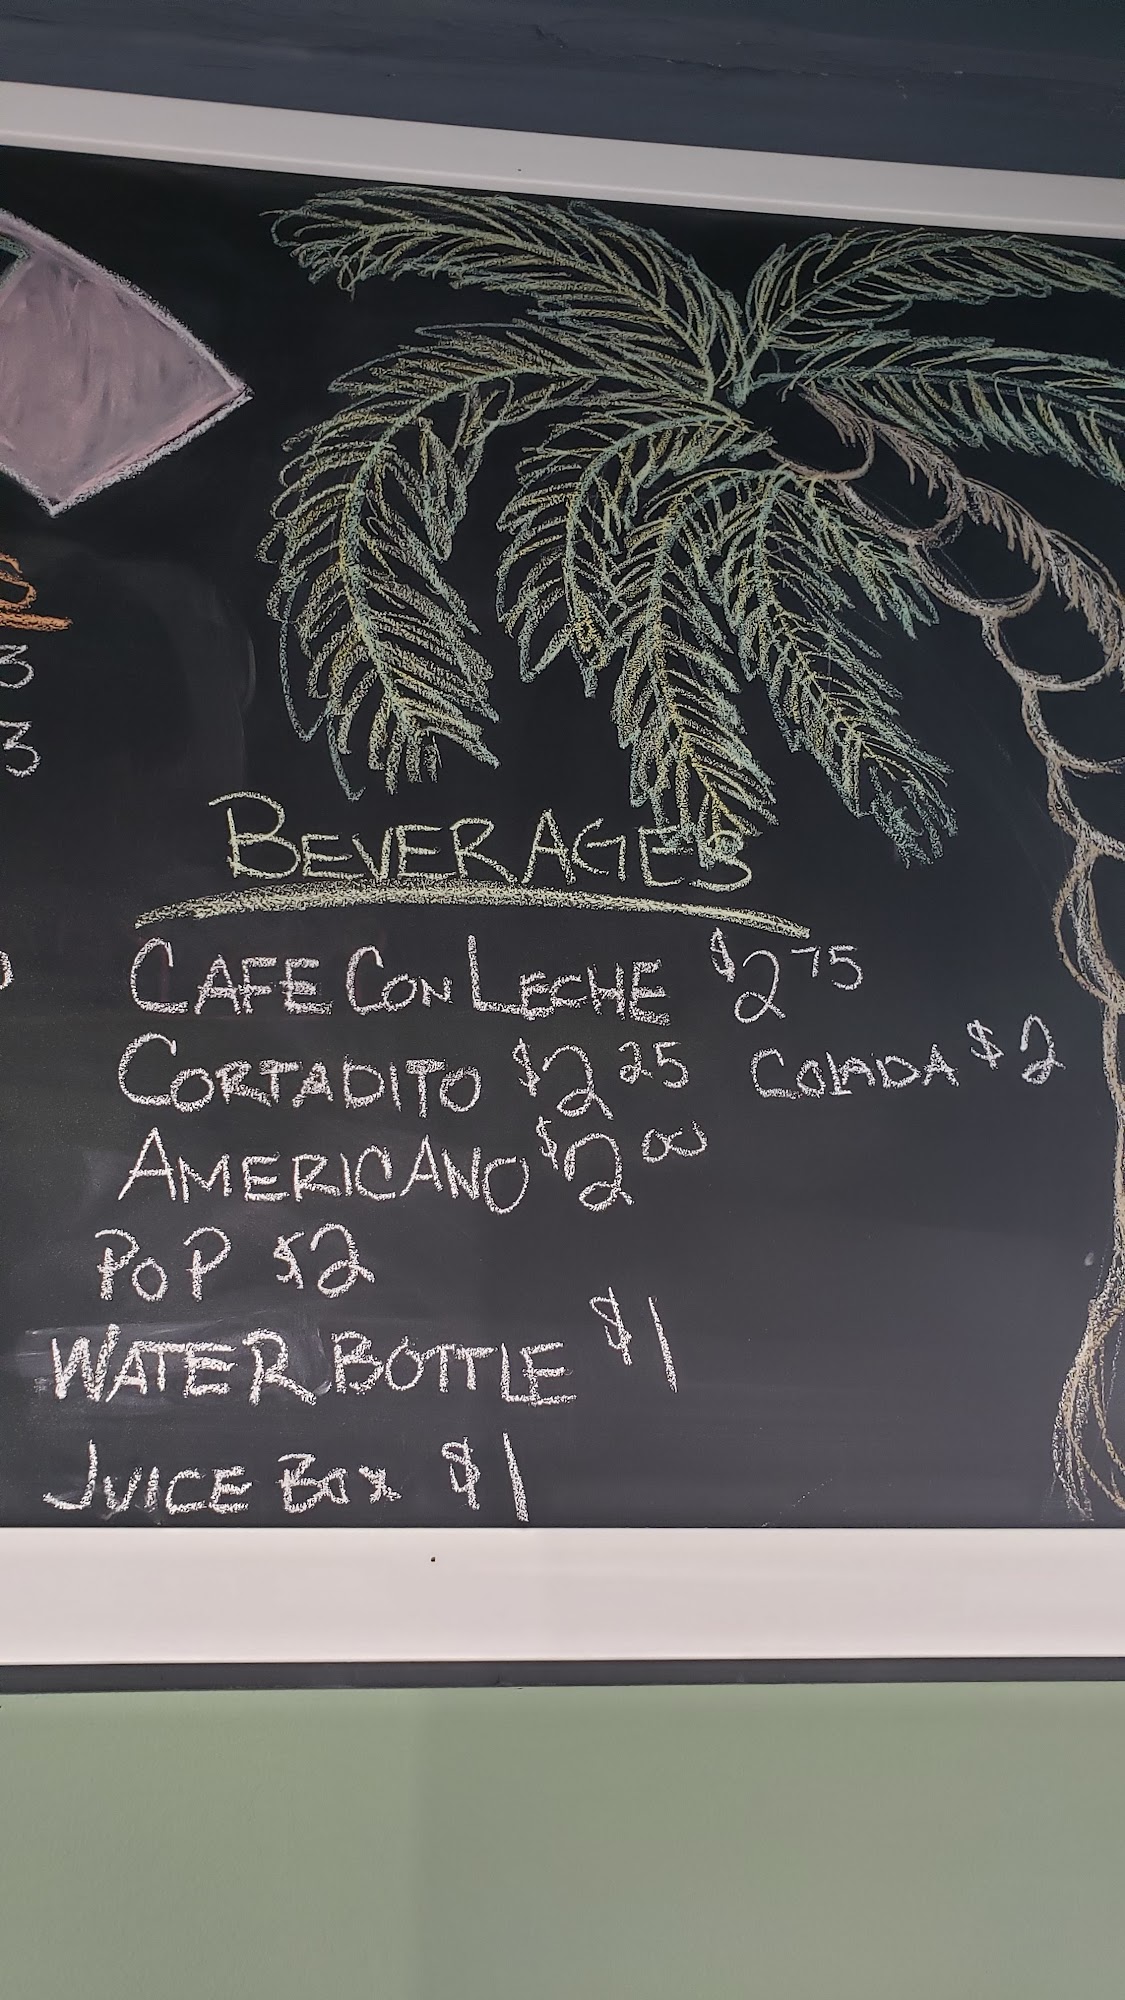 3
3
BEVERAGES
CAFE CON LECHE $2 75
CORTADITO $2 25 COLADA $2
AMERICANO $2 00
POP $2
WATER BOTTLE $1
JUICE BOX $1